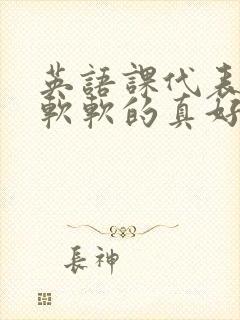 英語課代表
軟軟的真好
長神